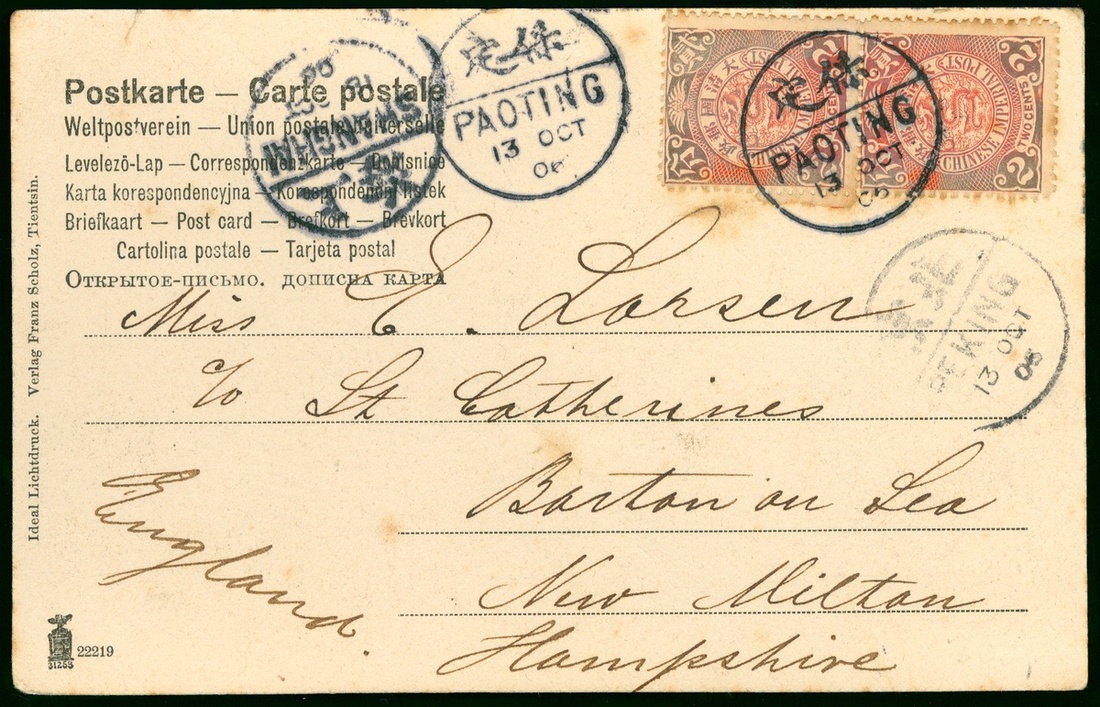 Postkarte — Carte postale
Weltpostverein — Union postale universelle
Levelező-Lap — Correspondenzkarte — Dopisnice
Karta korespondencyjna — Korespondenční listek
Briefkaart — Post card — Brefkort — Brevkort
Cartolina postale — Tarjeta postal
Открытое-письмо. дописна карта
SHANGHAI
保定
PAOTING
13 OCT
06
保定
PAOTING
13 OCT
06
CHINESE IMPERIAL POST
2
TWO CENTS
2
PEKING
13 OCT
06
Miss E. Larsen
c/o St Catherines
Barton on Sea
New Milton
Hampshire
England
Ideal Lichtdruck. Verlag Franz Scholz, Tientsin.
31253
22219